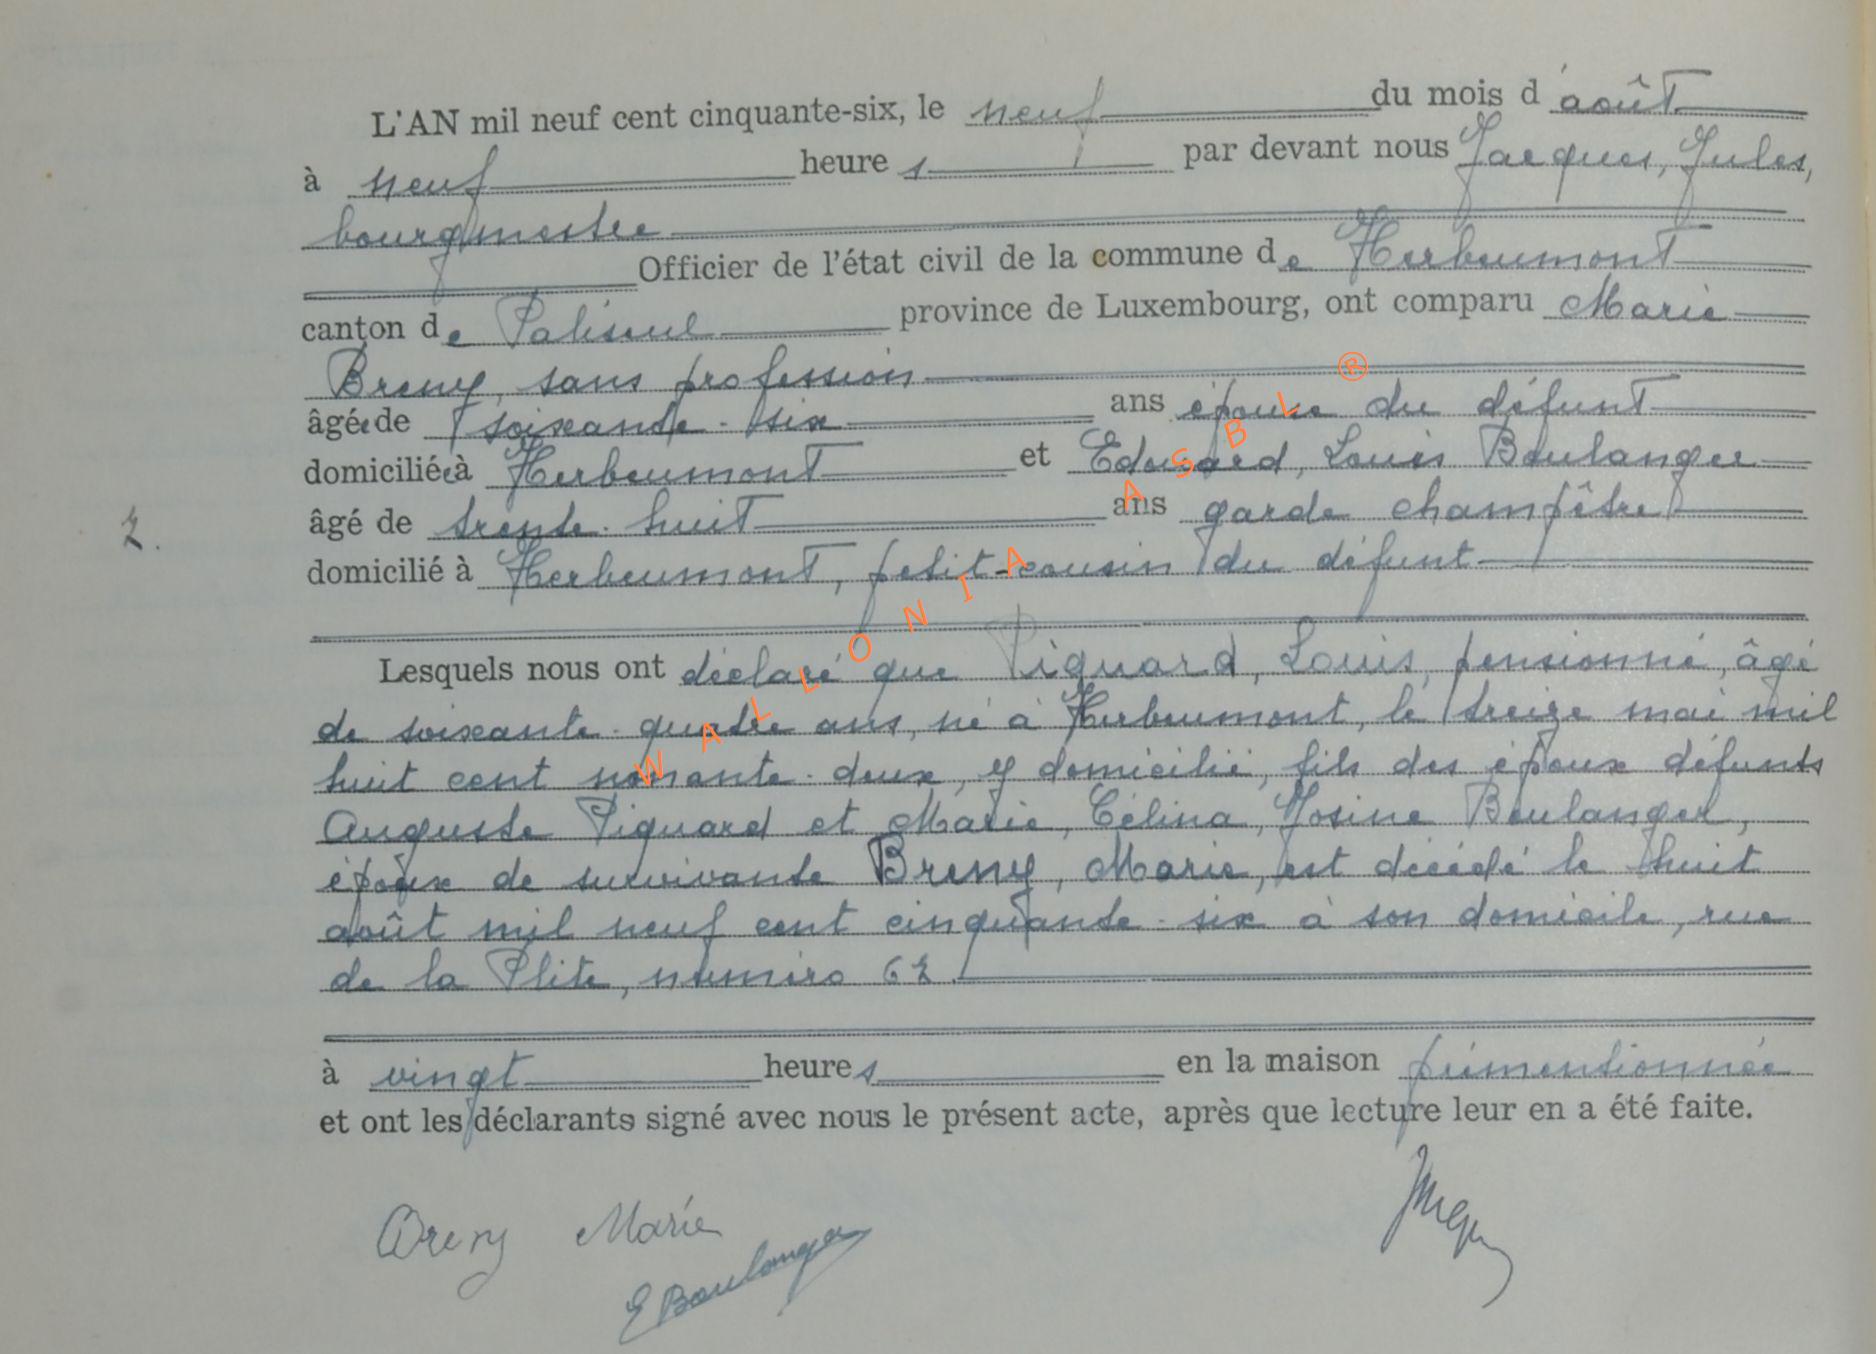 L'AN mil neuf cent cinquante-six, le neuf du mois d'août
à neuf heures par devant nous Jacques, Jules,
bourgmestre
Officier de l'état civil de la commune de Herbeumont
canton de Paliseul province de Luxembourg, ont comparu Marie
Breny, sans profession
âgée de soixante-six ans épouse du défunt
domiciliée à Herbeumont et Edouard, Louis Boulanger
âgé de trente-huit ans garde champêtre
2.
domicilié à Herbeumont, petit-cousin du défunt
Lesquels nous ont déclaré que Piquard, Louis, pensionné, âgé
de soixante-quatre ans, né à Herbeumont, le treize mai mil
huit cent nonante-deux, y domicilié, fils des époux défunts
Auguste Piquard et Marie, Célina, Josine Boulanger,
époux de survivante Breny, Marie, est décédé le huit
août mil neuf cent cinquante-six à son domicile, rue
de la Plite, numéro 62.
à vingt heures en la maison prémentionnée
et ont les déclarants signé avec nous le présent acte, après que lecture leur en a été faite.
Breny Marie
E Boulanger
WALLONIA ASBL ®